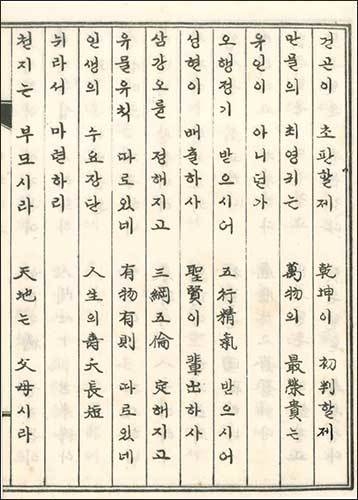 건곤이 초판할제 乾坤이 初判할제
만물의 최영귀는 萬物의 最榮貴는
유인이 아니던가
오행정기 받으시어 五行精氣 받으시어
성현이 배출하사 聖賢이 輩出하사
삼강오륜 정해지고 三綱五倫 定해지고
유물유칙 따로있네 有物有則 따로있네
인생의 수요장단 人生의 壽夭長短
뉘라서 마련하리
천지는 부모시라 天地는 父母시라